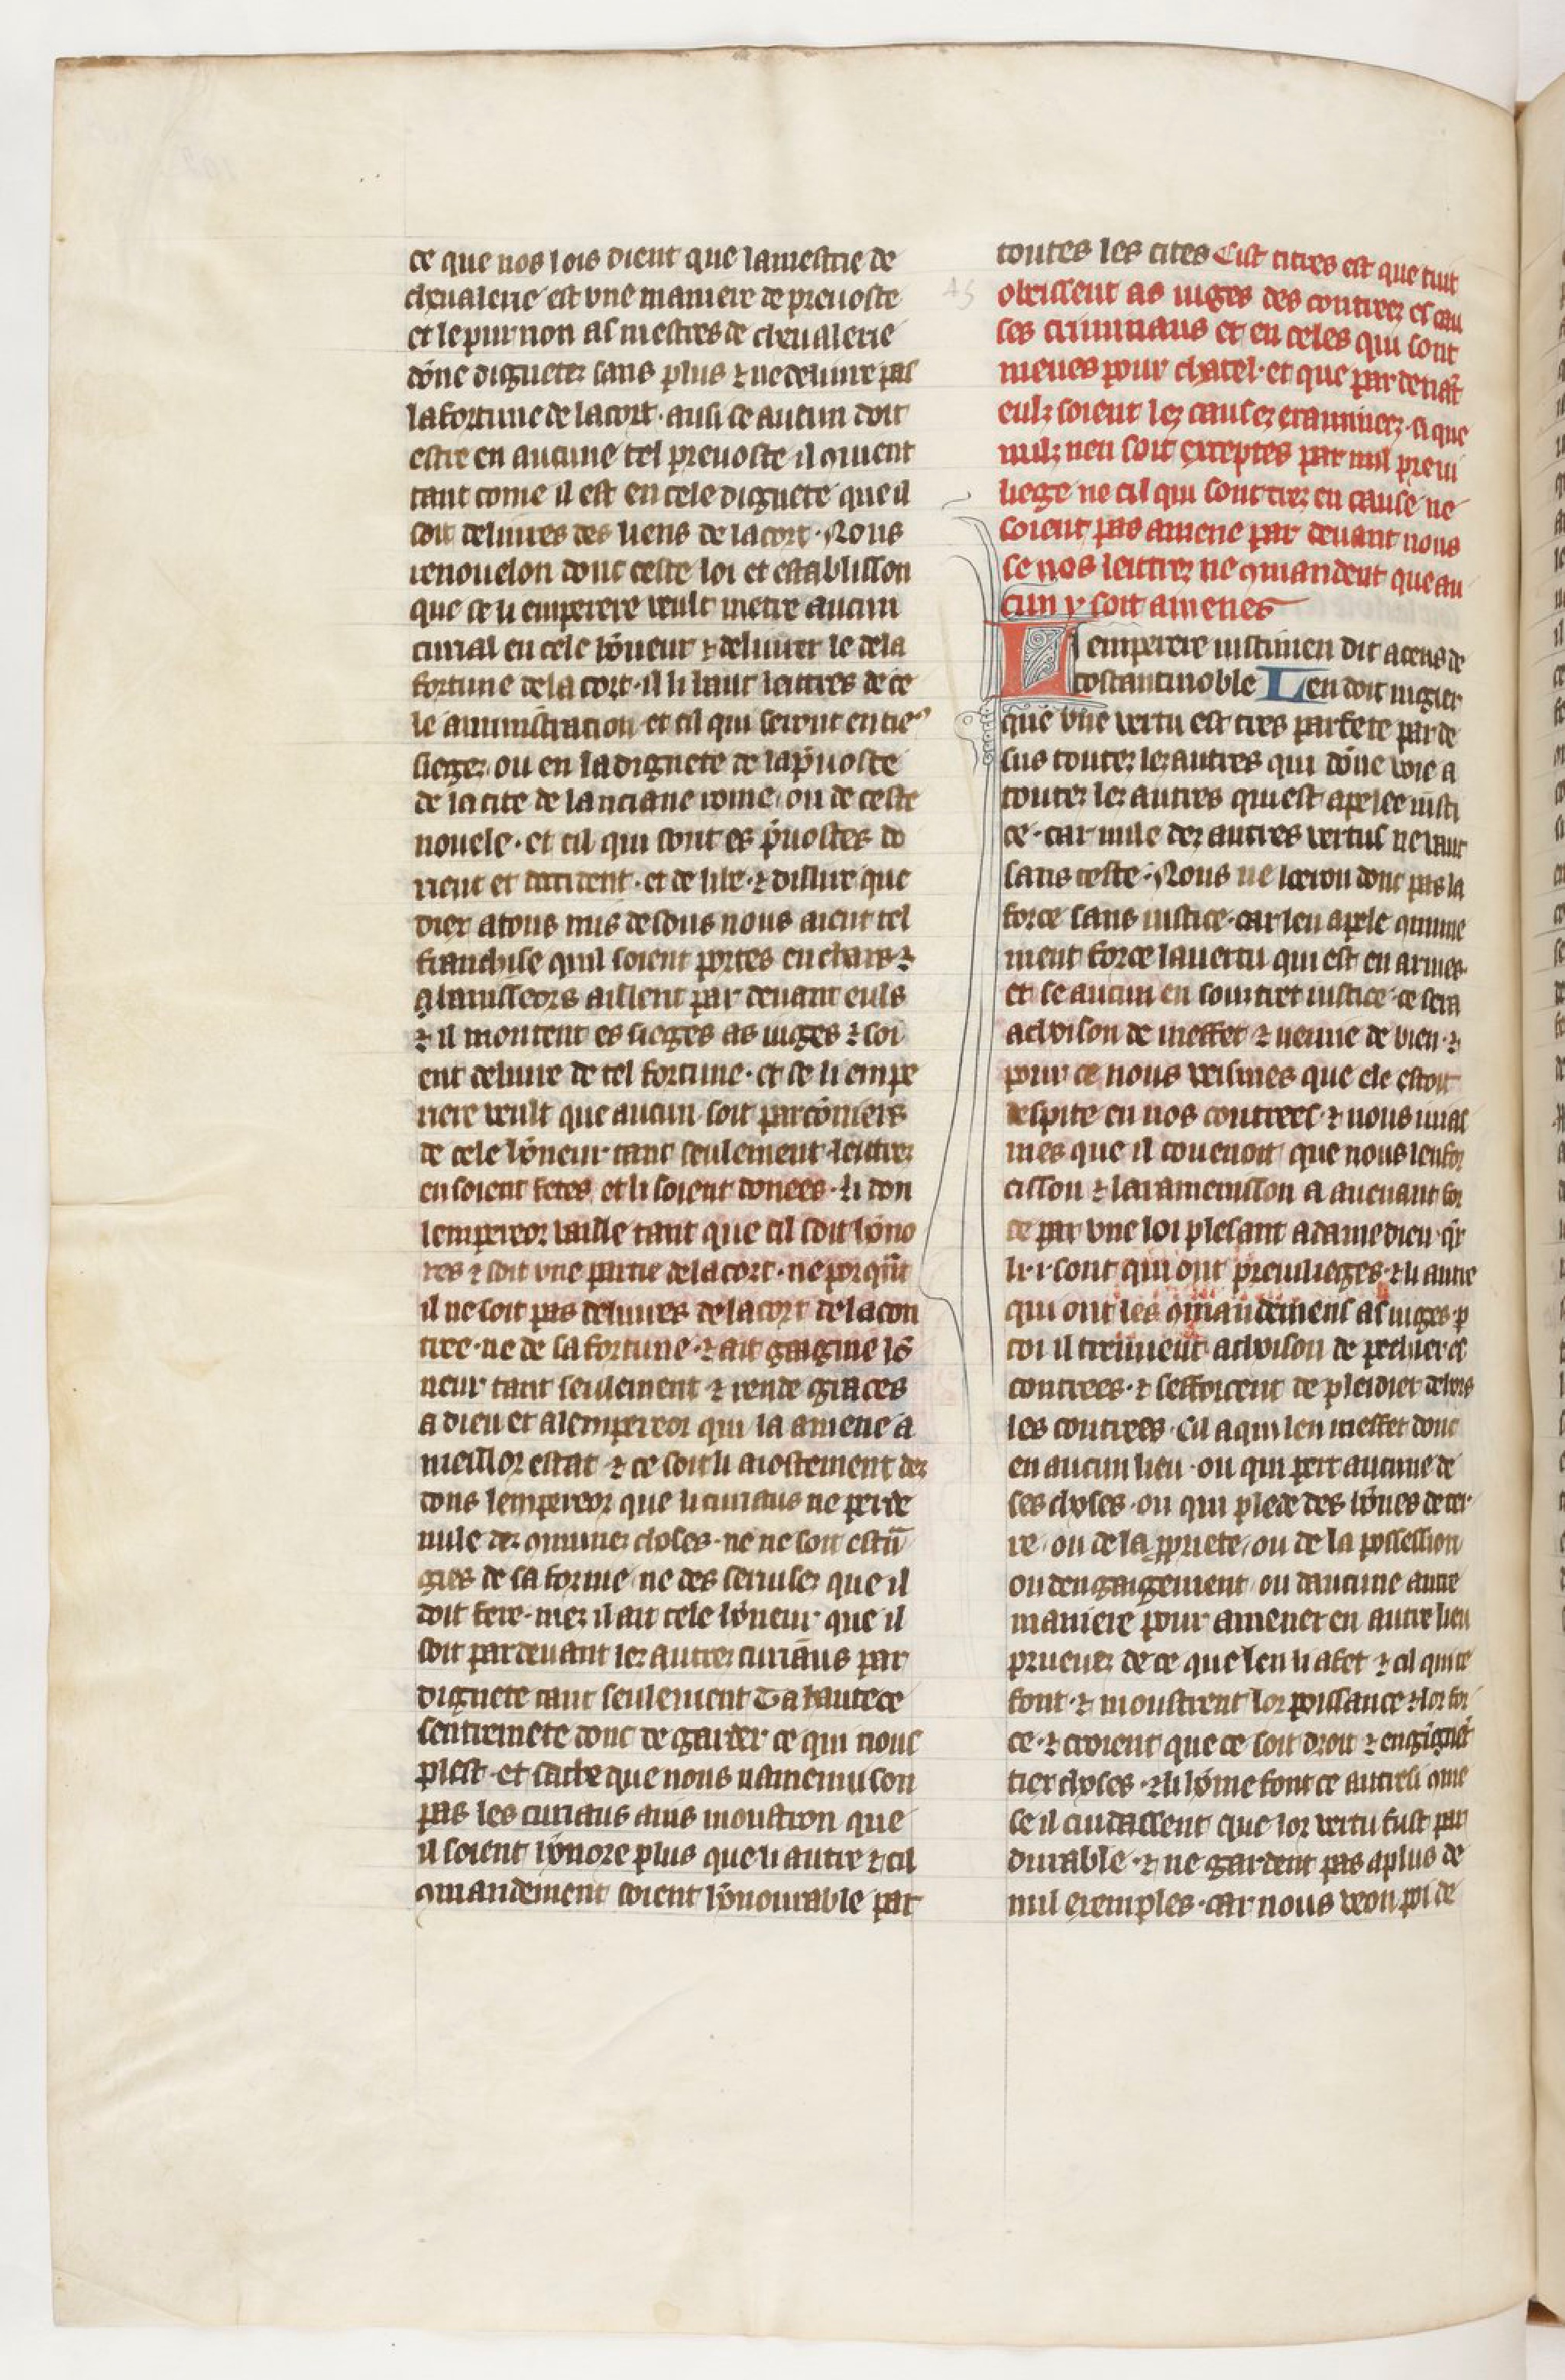 ce que nos lois dient que lamestrie de
cheualerie est vne maniere de preuoste
et le pur non as mestres de cheualerie
dōne dignetez sans plus ⁊ ne deliure pas
la fortune de la cort · ausi se aucun doit
estre en aucune tel preuoste il ꝯuient
tant come il est en cele dignete que il
soit deliures des liens de la cort · Nous
renouelon donc ceste loi et establisson
que se li emperere veult metre aucun
curial en cele hōneur ⁊ deliurer le de la
fortune de la cort · il li baut leittres de ce
le aministracion et cil qui seront en tie
sieges ou en la dignete de la p̄uoste
de la cite de lanciane rome ou de ceste
nouele · et cil qui sont es p̄uostes do
rient et doccident · et de lile · ⁊ dillire que
dier a tous mis desous nous aient tel
franchise quil soient portes en chars ⁊
q̄ lanisseors aillent par deuant euls
⁊ il montent es sieges as iuges ⁊ soi
ent deliure de tel fortune · et se li empe
riere veult que aucun soit parcōniers
de cele hōneur tant seulement leittrez
en soient fetes et li soient donees · li don
lempereor vaille tant que cil soit hōno
res ⁊ soit vne partie de la cort · ne por quāt
il ne soit pas deliures de la cort de la con
tree · ne de sa fortune · ⁊ ait gaigine lō
neur tant seulement ⁊ rende graces
a dieu et a lempereor qui la amene a
meillor estat ⁊ ce soit li aiostement dez
dons lempereor que li curiaus ne perde
nule dez ꝯmunez choses · ne ne soit estrā
gies de sa forme ne des seruisez que il
doit fere · mez il ait cele hōneur que il
soit par deuant lez autrez curiāus par
dignete tant seulement Ta hautece
sentremete donc de garder ce qui nous
plest · et sache que nous namenuison
pas les curiaus ains moustron que
il soient hōnore plus que li autre ⁊ cil
ꝯmandement soient hōnourable par
toutes les cites Cist titres est que tuit
obeissent as iuges des contreez es cau
ses criminaus et en celes qui sont
meues pour chatel · et que par deuāt
eulz soient lez causez examinez · si que
nulz nen soit exceptes par nul preui
liege ne cil qui sont trez en cause ne
soient pas amene par deuant nous
se nos leittrez ne ꝯmandent que au
cun y soit amenes
Li emperere iustinien dit a ceus de
costantinoble Len doit iugier
que vne vertu est tres parfete par de
sus toutez lez autres qui dōne voie a
toutez lez autres qui est apelee iusti
ce · car nule dez autres vertus ne vaut
sans ceste · Nous ne leron donc pas la
force sans iustice · car len apele ꝯmune
ment force la uertu qui est en armes ·
et se aucun en soutret iustice · ce sera
achoison de meffet ⁊ nenne de bien · ⁊
pour ce nous veismes que ele estoit
despite en nos contrees · ⁊ nous iurās
mes que il couenoit que nous lenfor
cisson ⁊ la ramenisson a auenant for
ce par vne loi plesant a dame dieu · car
li · i · sont qui ont preuilieges · ⁊ li autre
qui ont les ꝯmandemens as iuges · p
coi il treuuent achoison de pechier es
contrees · ⁊ sefforcent de pleidier dehors
les contrees · Cil a qui len meffet donc
en aucun lieu · ou qui pert aucune de
ses choses · ou qui plede des bōnes de ter
re · ou de la ꝓpriete / ou de la possession
ou dengaigement ou daucune autre
maniere pour amener en autre lieu
prueuez de ce que len li a fet ⁊ cil qui ce
font · ⁊ moustrent lor poissance ⁊ lor for
ce · ⁊ croient que ce soit droit ⁊ engignēt
tier choses · ⁊ li hōme font ce autresi ꝯme
se il cuidassent que lor vertu fust par
durable · ⁊ ne gardent pas a plus de
mil exemples · car nous veon poi de